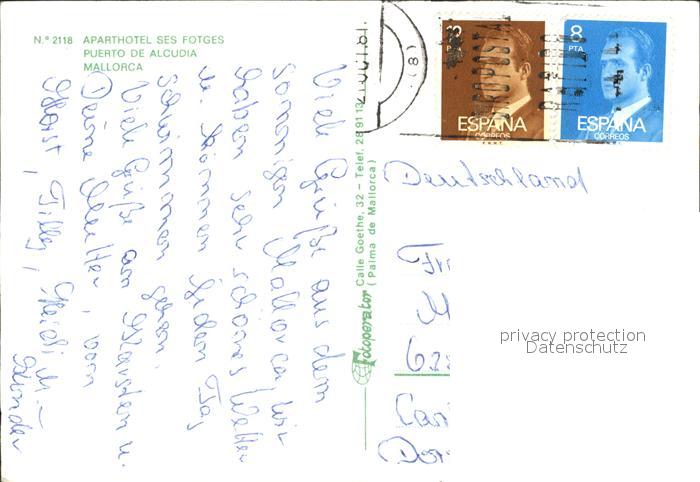 N.º 2118 APARTHOTEL SES FOTGES
PUERTO DE ALCUDIA
MALLORCA
Viele Grüße aus dem
sonnigen Mallorca. Wir
haben sehr schönes Wetter
u. können jeden Tag
schwimmen gehen.
Viele Grüße an Karsten u.
Deine Mutter, von
Horst, Tilly, Heidi u.
Fotoperator Calle Goethe, 32 - Telef. 28 91 13
(Palma de Mallorca)
3
ESPAÑA
CORREOS
F.N.M.T.
8
PTA
ESPAÑA
CORREOS
F.N.M.T.
(8)
Deutschland
privacy protection
Datenschutz